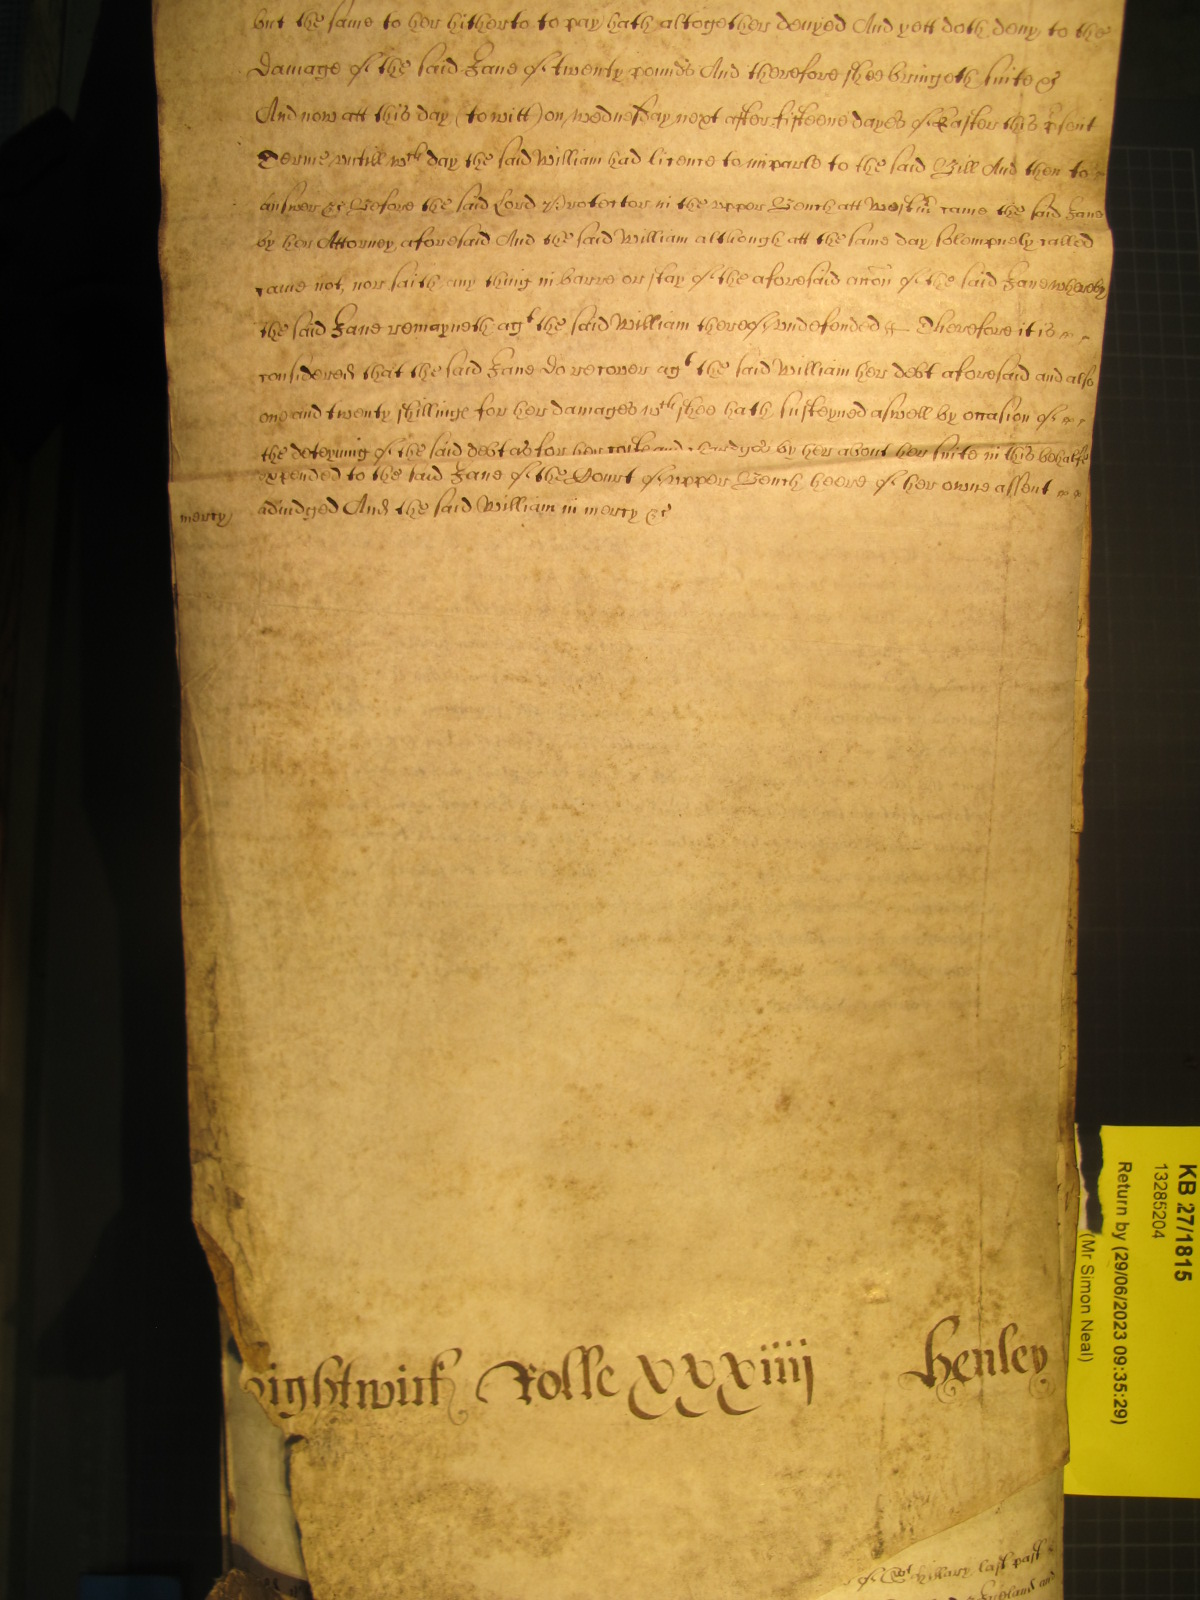 but the same to her hitherto to pay hath altogether denyed And yett doth deny to the
Damage of the said Jane of twenty pounds And therefore shee bringeth suite &c
And now att this day (to witt) on wednesday next after fifteene dayes of Easter this p'sent
Terme, untill wch day the said William had licence to imparle to the said Bill And then to
answer &c Before the said Lord Protector in the upper Bench att Westmr came the said Jane
by her Attorney aforesaid And the said William although att the same day solempnely called
came not, nor saith any thing in barre or stay of the aforesaid accon of the said Jane whereby
the said Jane remayneth agt the said William thereof undefended &c Therefore it is
considered that the said Jane do recover agt the said William her debt aforesaid and also
one and twenty shillings for her damages wch shee hath susteyned aswell by occasion of
the deteyning of the said debt as for her costs and charges by her about her suite in this behalfe
expended to the said Jane of the Court of upper Bench heere of her owne assent
mercy adiudged And the said William in mercy &c
KB 27/1815
13285204
Return by (29/06/2023 09:35:29)
(Mr Simon Neal)
ightwick Rolle XXXiiij Henley
of St Hilary last past